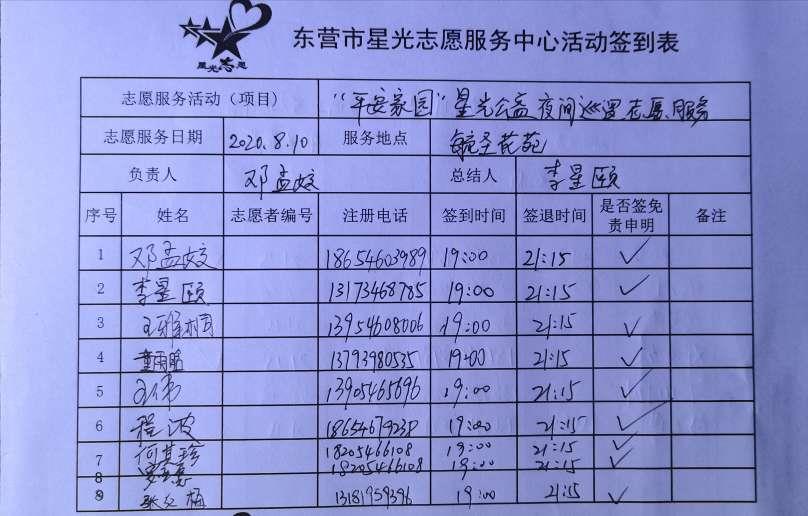 星光志愿
东营市星光志愿服务中心活动签到表
志愿服务活动（项目） "平安家园"星光公益夜间巡逻志愿服务
志愿服务日期 2020.8.10 服务地点 苑
负责人 邓孟姣 总结人 李星颐
序号 姓名 志愿者编号 注册电话 签到时间 签退时间 是否签免责申明 备注
1 邓孟姣 18654603989 19:00 21:15 ✓
2 李星颐 13173468785 19:00 21:15 ✓
3 王雅桐 13954608006 19:00 21:15 ✓
4 13793980535 19:00 21:15 ✓
5 王伟 13905465696 19:00 21:15 ✓
6 程波 19:00 21:15 ✓
7 何其珍 18205466108 19:00 21:15 ✓
8 18205466108 19:00 21:15 ✓
9 张梅 13181959396 19:00 21:15 ✓